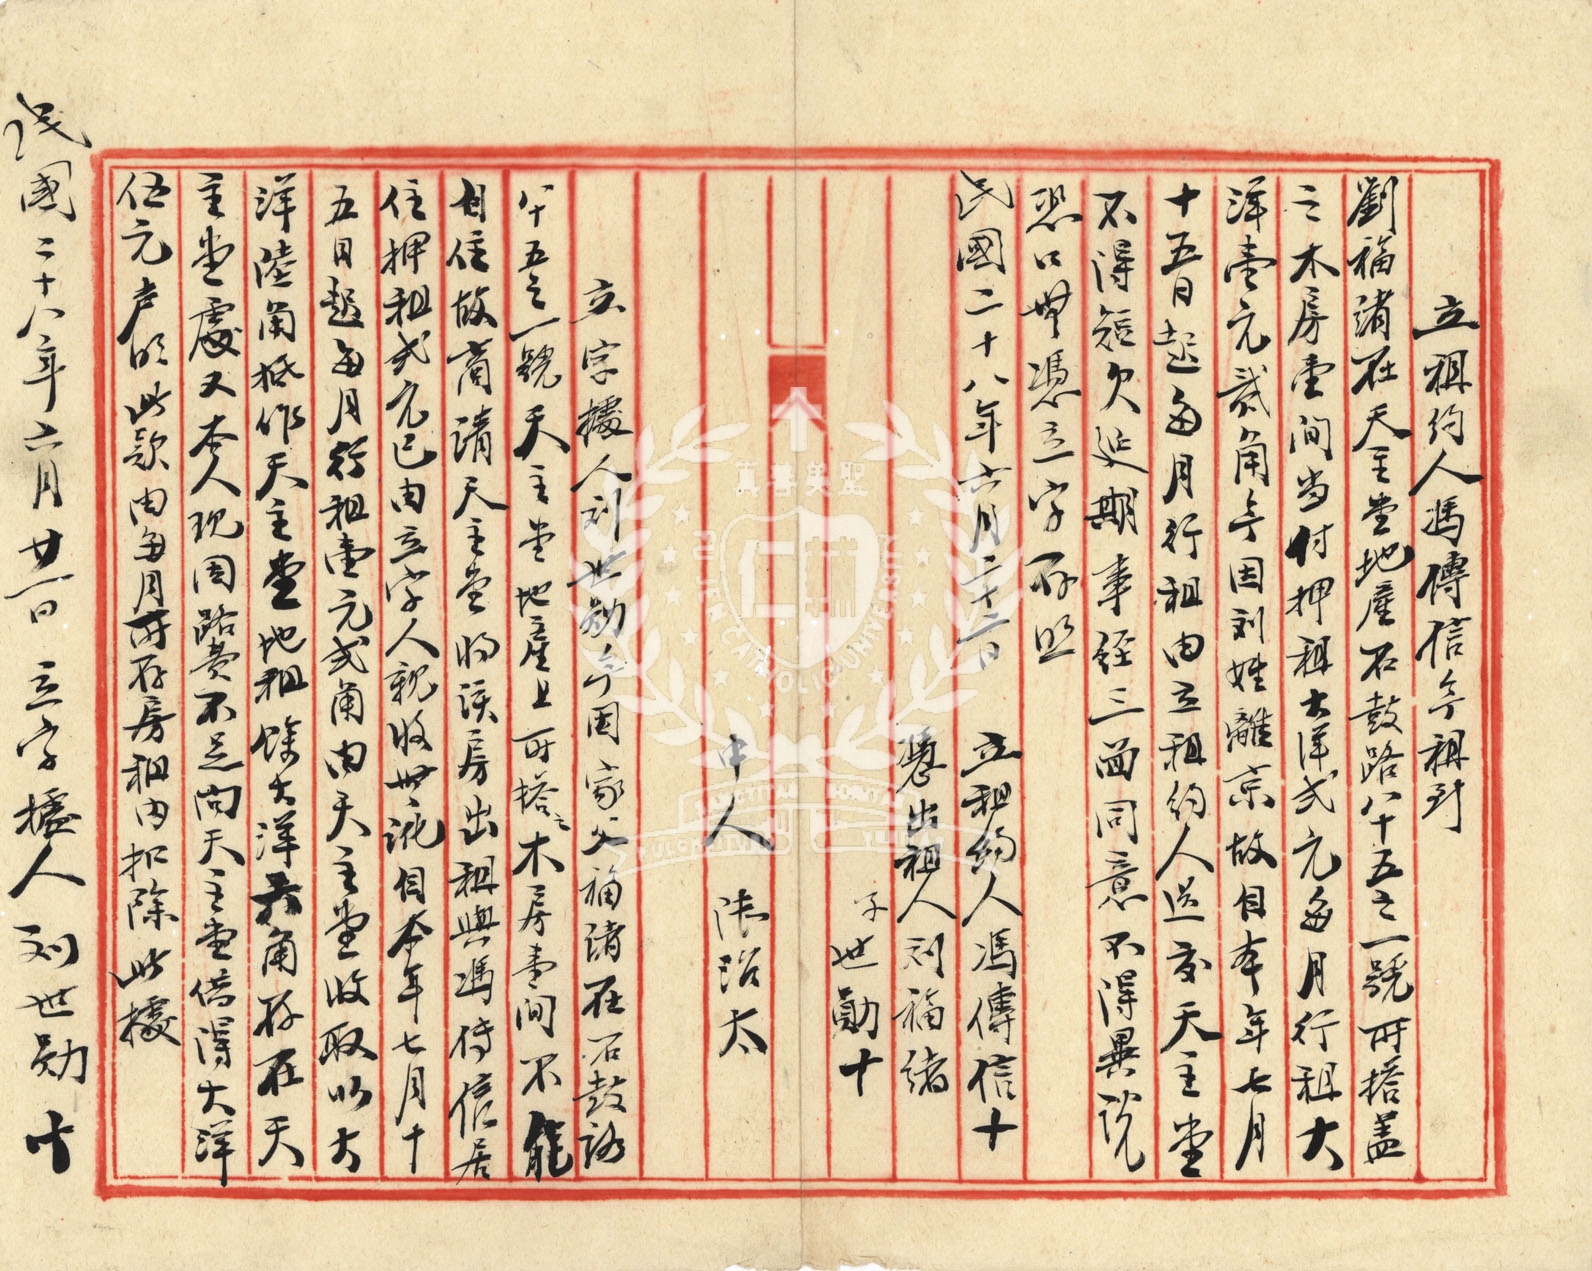 立租約人馮傳信今租到
劉福緒在天主堂地產石鼓路八十五之一號所搭蓋
之木房壹間当付押租大洋弍元每月行租大
洋壹元弍角今因刘姓離京故自本年七月
十五日起每月行租由立租約人送交天主堂
不得短欠延期事經三面同意不得異說
恐口無憑立字存照
民國二十八年六月二十二日 立租約人馮傳信十
憑出租人刘福緒
子世勛十
中人 陆治太
立字據人刘世勛今因家父福緒在石鼓路
八十五之一號天主堂地產上所搭之木房壹間不能
自住故商請天主堂将該房出租與馮傳信居
住押租弍元已由立字人親收無訛自本年七月十
五日起每月行租壹元弍角由天主堂收取以大
洋陸角抵作天主堂地租餘大洋六角存在天
主堂處又本人現因路費不足向天主堂借得大洋
伍元声明此款由每月所存房租内扣除此據
民國二十八年六月廿二日 立字據人刘世勛十
聖美善真
FU JEN CATHOLIC UNIVERSITY